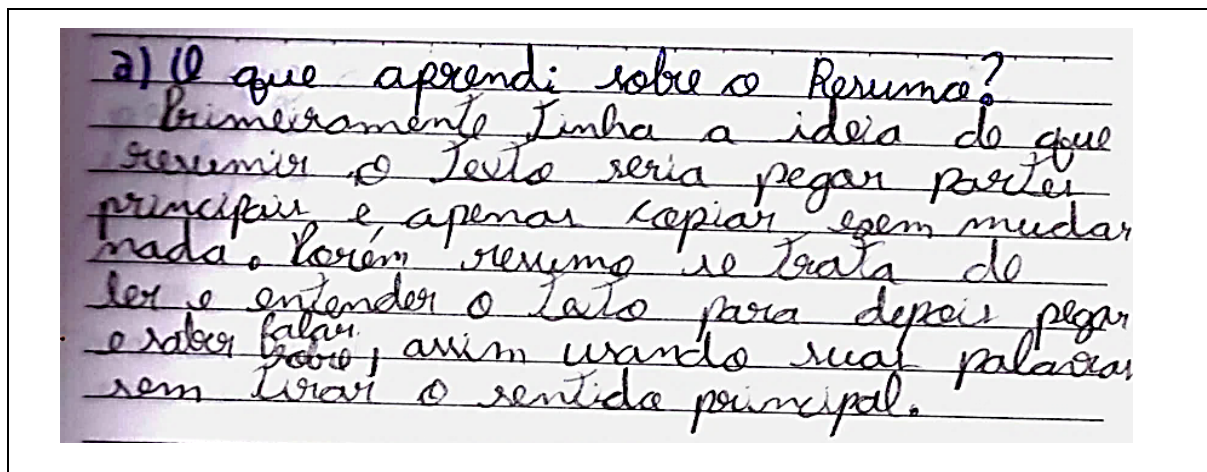 a) O que aprendi sobre o Resumo?
Primeiramente tinha a ideia de que
resumir o texto seria pegar partes
principais e apenas copiar, e sem mudar
nada. Porém resumo se trata de
ler e entender o texto para depois pegar
e saber falar sobre, assim usando suas palavras
sem tirar o sentido principal.